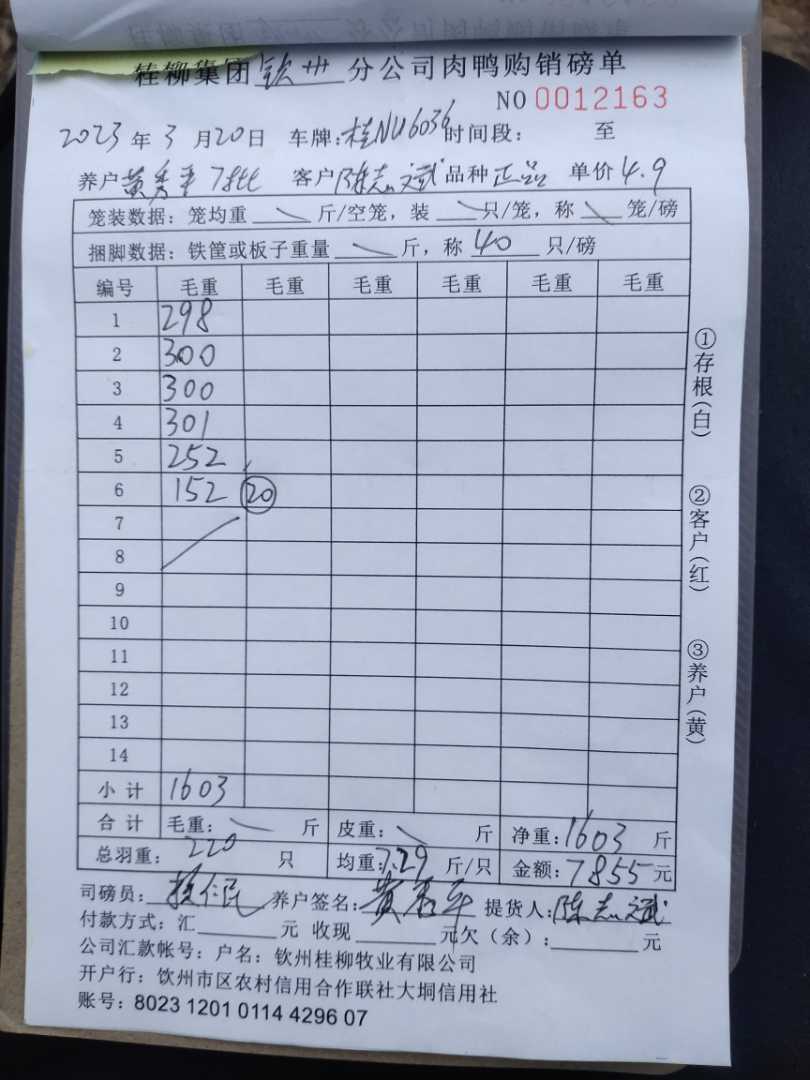 桂柳集团钦州分公司肉鸭购销磅单
NO 0012163
2023年3月20日 车牌:桂NU6036 时间段: 至
养户黄秀平 客户陈志斌 品种正品 单价4.9
笼装数据：笼均重 斤/空笼，装 只/笼，称 笼/磅
捆脚数据：铁筐或板子重量 斤，称 40 只/磅
编号 毛重 毛重 毛重 毛重 毛重 毛重
1 298
2 300
3 300
4 301
5 252
6 152 20
7
8
9
10
11
12
13
14
小计 1603
合计 毛重: 斤 皮重: 斤 净重:1603 斤
总羽重: 220 只 均重:7.29 斤/只 金额:7855元
司磅员: 仁民 养户签名:黄秀平 提货人:陈志斌
付款方式：汇 元 收现 元欠（余）: 元
公司汇款帐号：户名：钦州桂柳牧业有限公司
开户行：钦州市区农村信用合作联社大垌信用社
账号：8023 1201 0114 4296 07
①存根(白)
②客户(红)
③养户(黄)